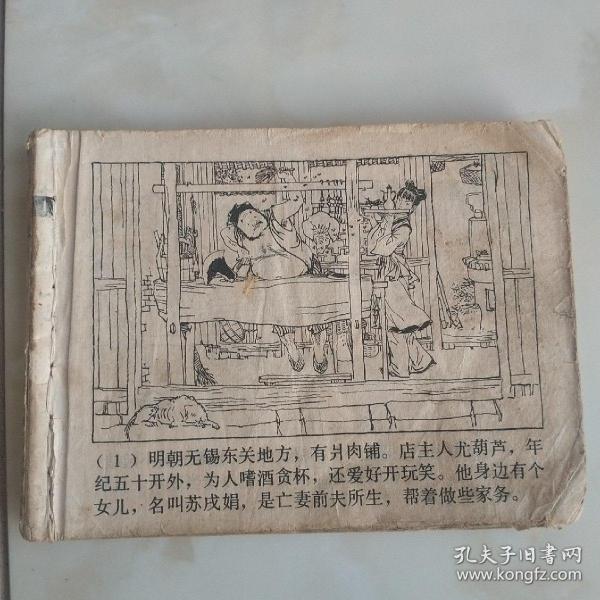 (1)明朝无锡东关地方，有爿肉铺。店主人尤葫芦，年
纪五十开外，为人嗜酒贪杯，还爱好开玩笑。他身边有个
女儿，名叫苏戌娟，是亡妻前夫所生，帮着做些家务。
孔夫子旧书网
www.kongfz.com